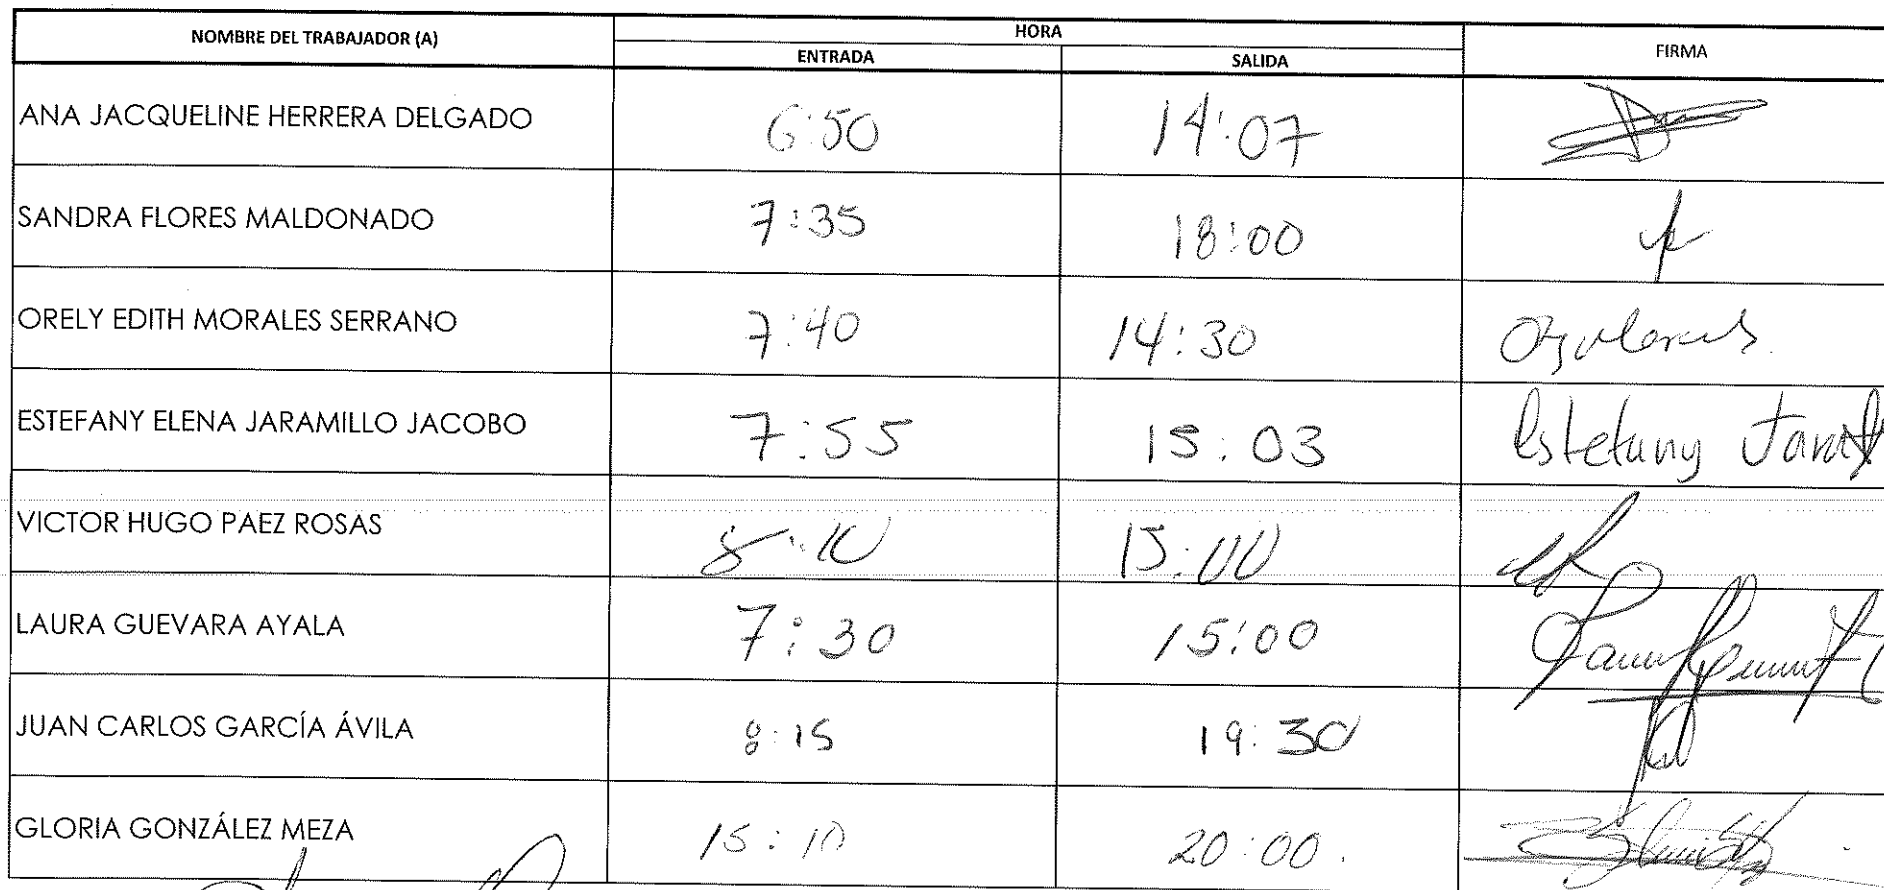 NOMBRE DEL TRABAJADOR (A) HORA FIRMA
ENTRADA SALIDA
ANA JACQUELINE HERRERA DELGADO 6:50 14:07
SANDRA FLORES MALDONADO 7:35 18:00
ORELY EDITH MORALES SERRANO 7:40 14:30
ESTEFANY ELENA JARAMILLO JACOBO 7:55 15:03 Estefany
VICTOR HUGO PAEZ ROSAS 8:10 15:00
LAURA GUEVARA AYALA 7:30 15:00
JUAN CARLOS GARCÍA ÁVILA 8:15 19:30
GLORIA GONZÁLEZ MEZA 15:10 20:00.